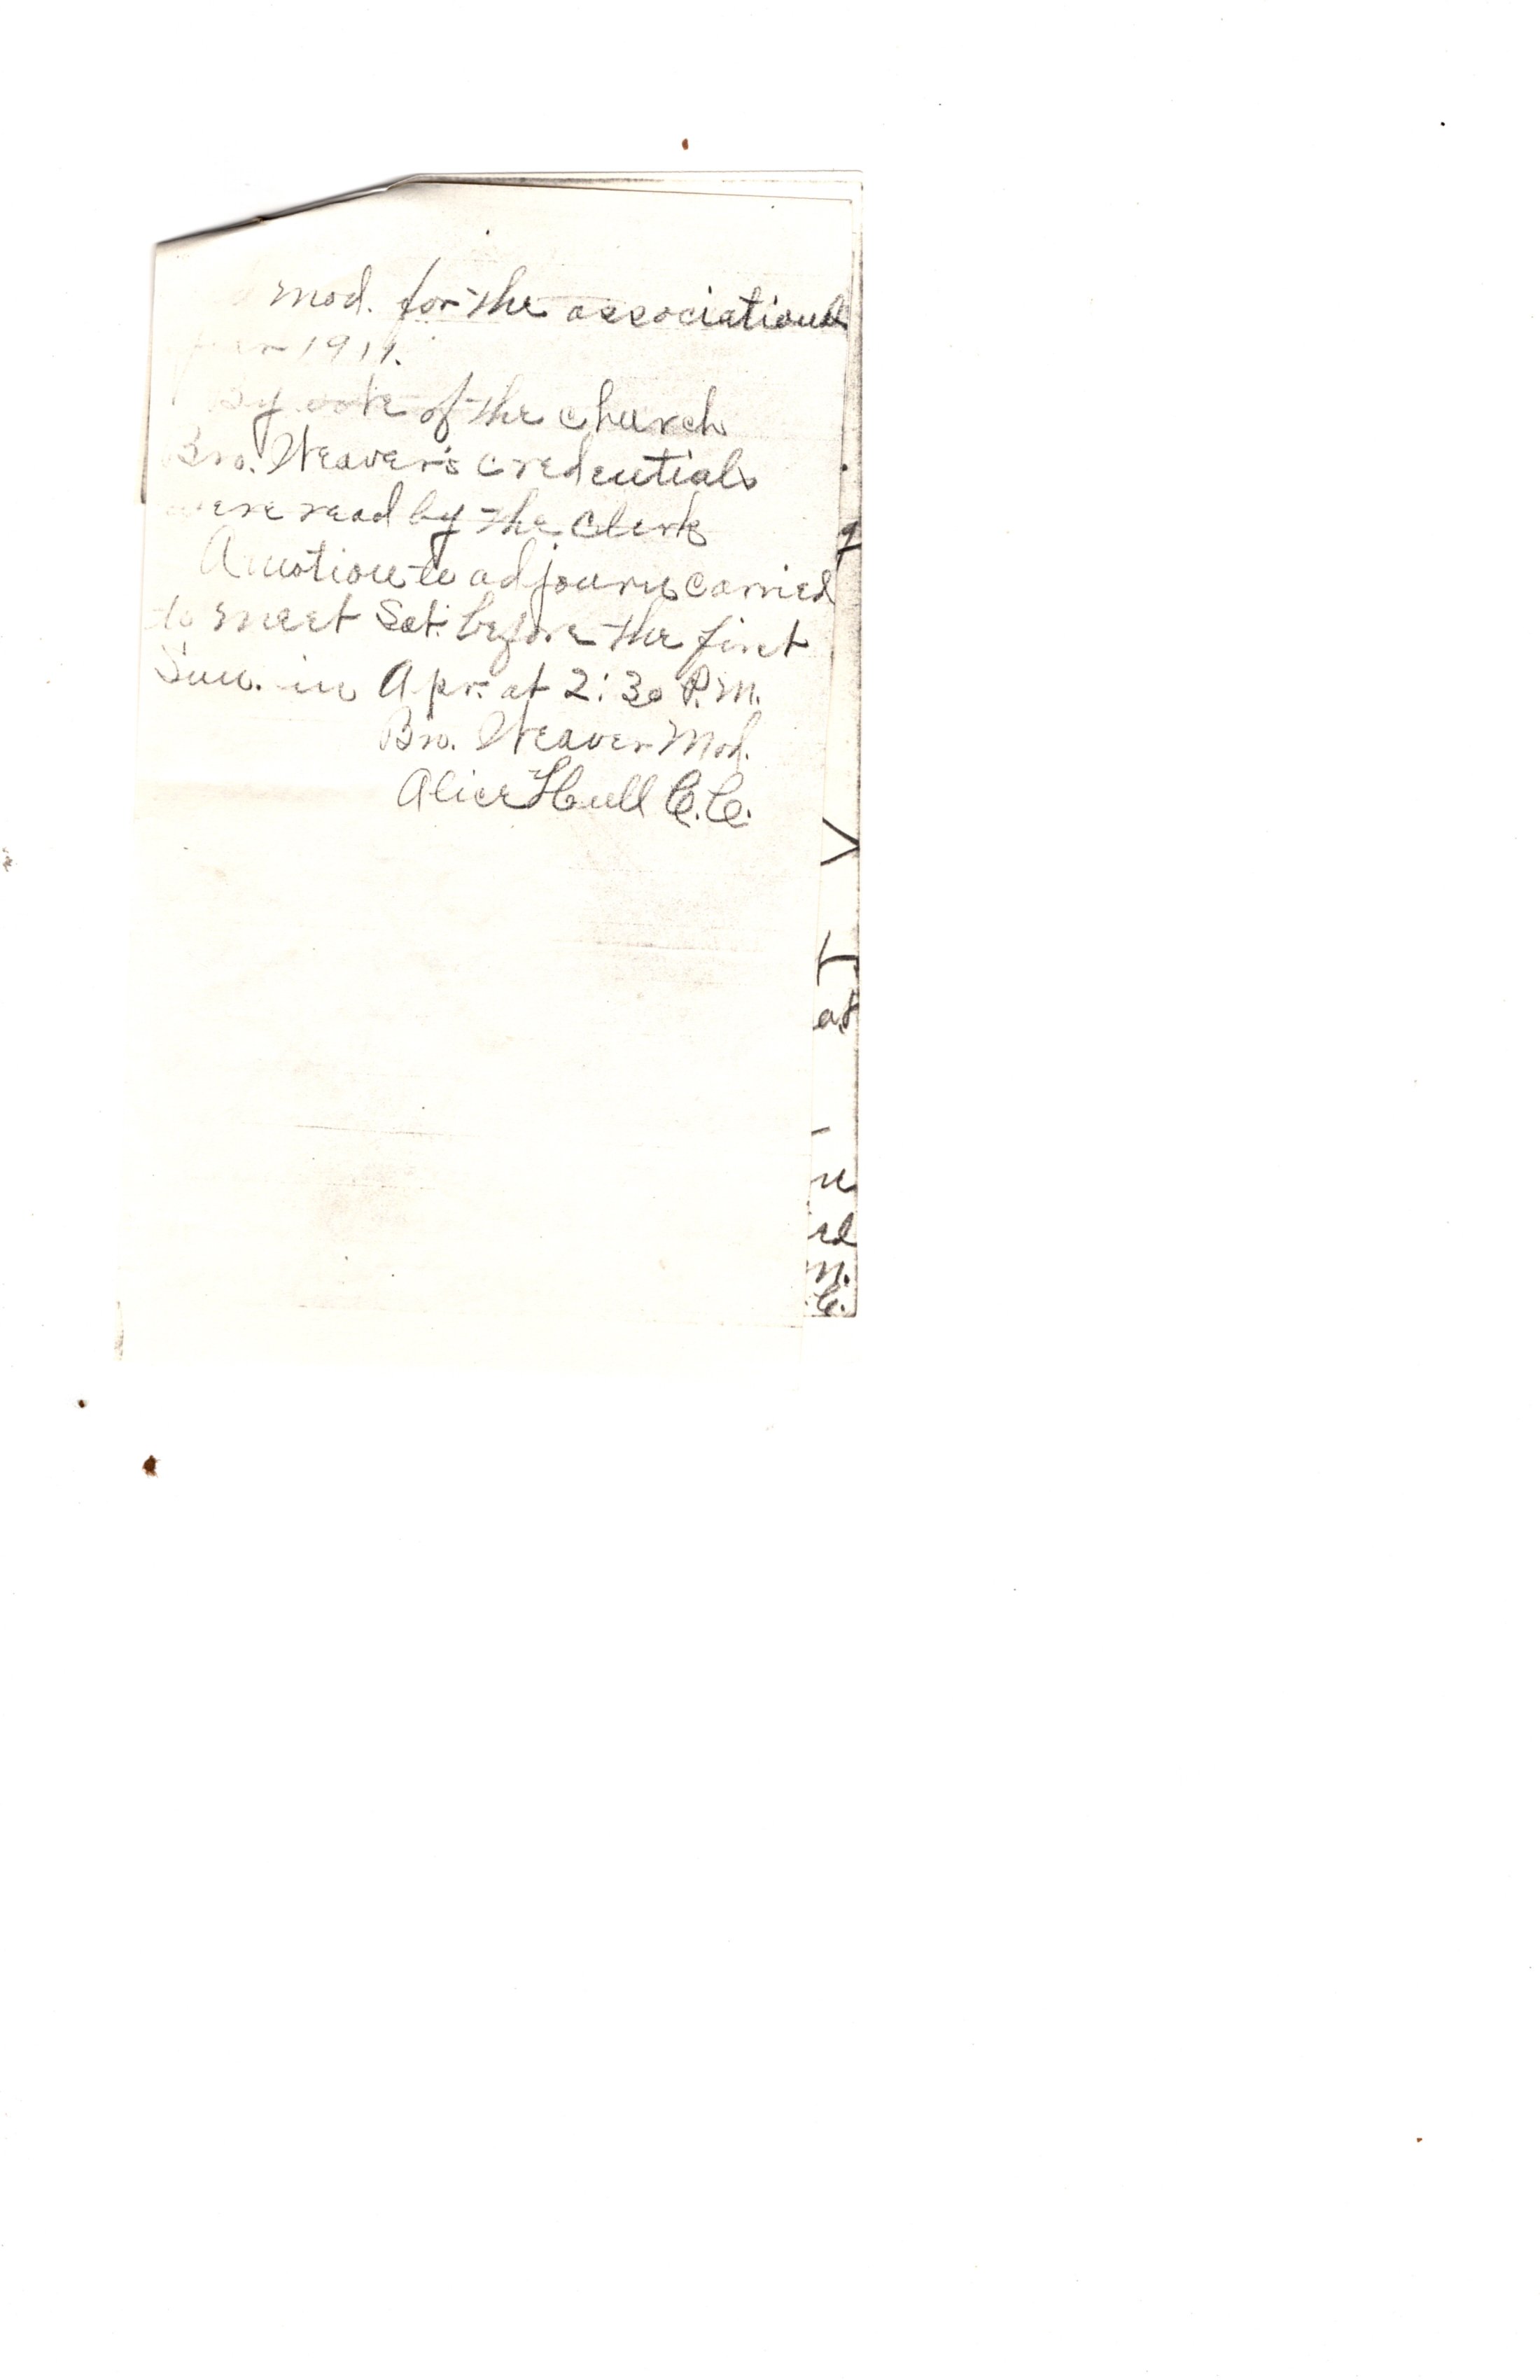 mod. for the associational
year 1911.
By vote of the church
Bro. Weaver's credentials
were read by the clerk
A motion to adjourn carried
to meet Sat. before the first
Sun. in Apr. at 2:30 P.M.
Bro. Weaver Mod.
Alice Hull C.C.
at